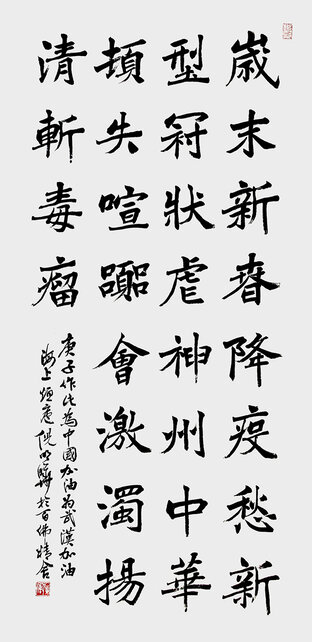 歲末新春降疫愁新
型冠狀虐神州中華
頓失喧囂會激濁揚
清斬毒瘤
庚子作此為中國加油為武漢加油
海上庵倪於百佛精舍